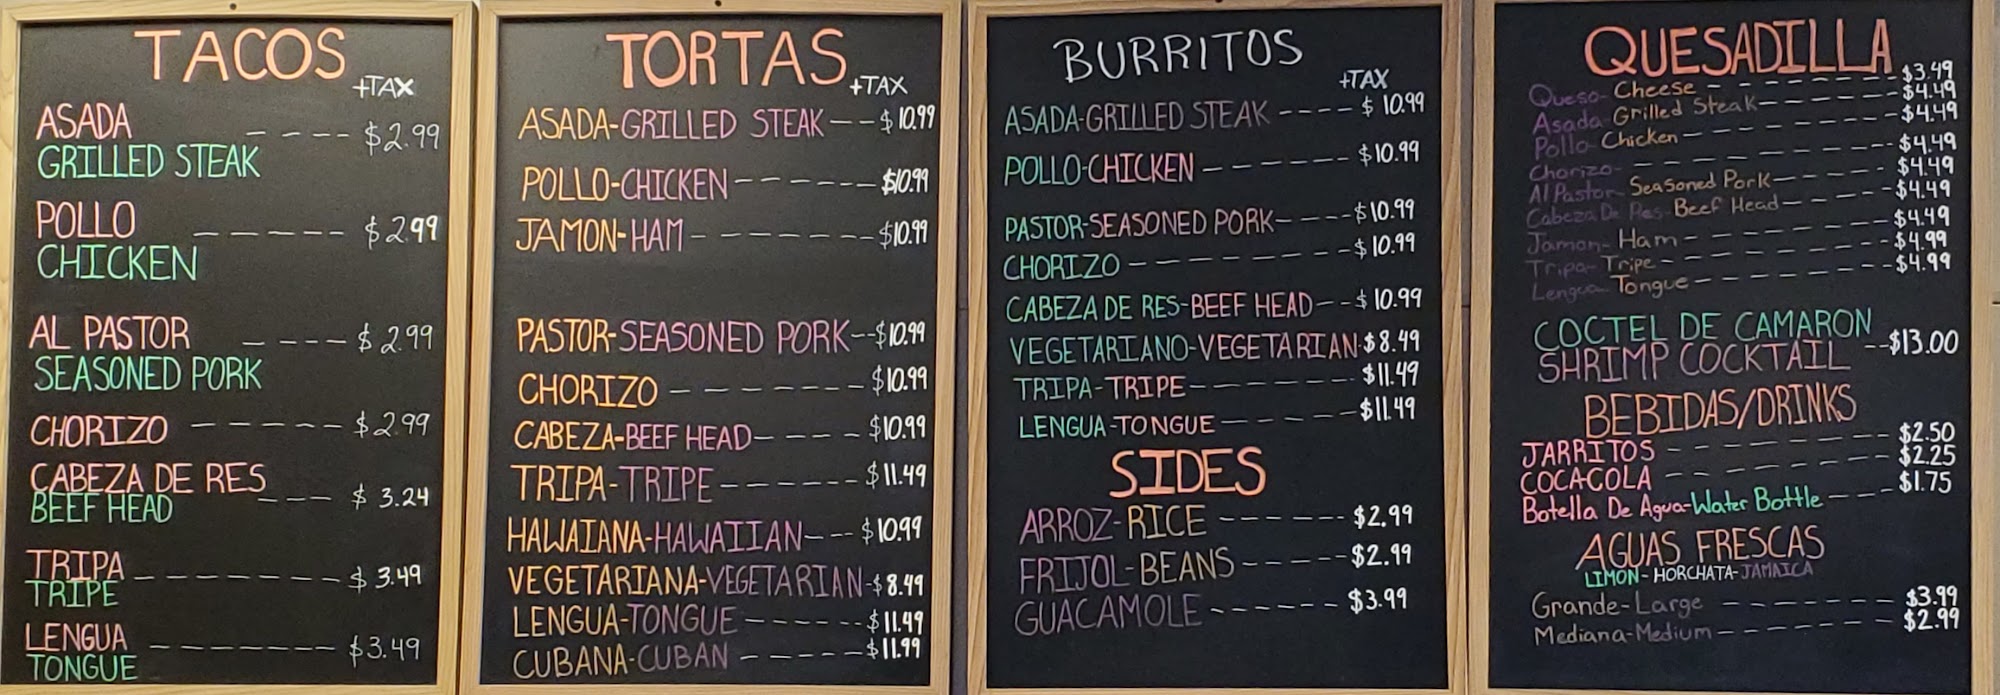 TACOS
+TAX
ASADA ---- $2.99
GRILLED STEAK
POLLO ----- $2.99
CHICKEN
AL PASTOR ---- $2.99
SEASONED PORK
CHORIZO ----- $2.99
CABEZA DE RES
BEEF HEAD --- $3.24
TRIPA ------- $3.49
TRIPE
LENGUA ------- $3.49
TONGUE
TORTAS
+TAX
ASADA-GRILLED STEAK -- $10.99
POLLO-CHICKEN ------ $10.99
JAMON-HAM ------- $10.99
PASTOR-SEASONED PORK--$10.99
CHORIZO ------- $10.99
CABEZA-BEEF HEAD---- $10.99
TRIPA-TRIPE ------ $11.49
HAWAIANA-HAWAIIAN--- $10.99
VEGETARIANA-VEGETARIAN-$8.49
LENGUA-TONGUE ------ $11.49
CUBANA-CUBAN ----- $11.99
BURRITOS
+TAX
ASADA-GRILLED STEAK ---- $10.99
POLLO-CHICKEN ------ $10.99
PASTOR-SEASONED PORK---- $10.99
CHORIZO -------- $10.99
CABEZA DE RES-BEEF HEAD-- $10.99
VEGETARIANO-VEGETARIAN-$8.49
TRIPA-TRIPE------- $11.49
LENGUA-TONGUE ----- $11.49
SIDES
ARROZ-RICE ------ $2.99
FRIJOL-BEANS ----- $2.99
GUACAMOLE ------ $3.99
QUESADILLA
Queso-Cheese ------ $3.49
Asada-Grilled Steak----- $4.49
Pollo-Chicken ------- $4.49
Chorizo- -------- $4.49
Al Pastor-Seasoned Pork---- $4.49
Cabeza De Res-Beef Head---- $4.49
Jamon-Ham ------- $4.49
Tripa-Tripe ------- $4.99
Lengua-Tongue ------ $4.99
COCTEL DE CAMARON
SHRIMP COCKTAIL --$13.00
BEBIDAS/DRINKS
JARRITOS ------- $2.50
COCACOLA ------- $2.25
Botella De Agua-Water Bottle --- $1.75
AGUAS FRESCAS
LIMON-HORCHATA-JAMAICA
Grande-Large ------- $3.99
Mediana-Medium ------- $2.99